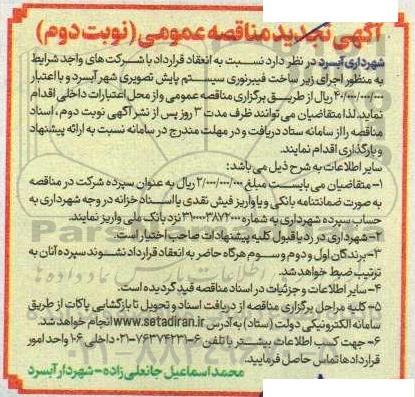 آگهی تجدید مناقصه عمومی (نوبت دوم)
شهرداری آبسرد در نظر دارد نسبت به انعقاد قرارداد با شرکت های واجد شرایط
به منظور اجرای زیر ساخت فیبرنوری سیستم پایش تصویری شهر آبسرد و با اعتبار
۴۰/۰۰۰/۰۰۰/۰۰۰ ریال از طریق برگزاری مناقصه عمومی و از محل اعتبارات داخلی اقدام
نماید. لذا متقاضیان می توانند ظرف مدت ۳ روز پس از نشر آگهی نوبت دوم، اسناد
مناقصه را از سامانه ستاد دریافت و در مهلت مندرج در سامانه نسبت به ارائه پیشنهاد
و بارگذاری اقدام نمایند.
سایر اطلاعات به شرح ذیل می باشد:
۱- متقاضیان می بایست مبلغ ۲/۰۰۰/۰۰۰/۰۰۰ ریال به عنوان سپرده شرکت در مناقصه
به صورت ضمانتنامه بانکی و یا واریز فیش نقدی یا اسناد خزانه در وجه شهرداری به
حساب سپرده شهرداری به شماره نزد بانک ملی واریز نمایند.
۲- شهرداری در رد یا قبول کلیه پیشنهادات صاحب اختیار است.
۳- برندگان اول و دوم و سوم هرگاه حاضر به انعقاد قرارداد نشوند سپرده آنان به
ترتیب ضبط خواهد شد.
۴- سایر اطلاعات و جزئیات در اسناد مناقصه قید گردیده است.
۵- کلیه مراحل برگزاری مناقصه از دریافت اسناد و تحویل تا بازگشایی پاکات از طریق
سامانه الکترونیکی دولت (ستاد) به آدرس www.setadiran.ir انجام خواهد شد.
۶- جهت کسب اطلاعات بیشتر با تلفن ۶-۷۶۳۷۴۲۳۱-۰۲۱ داخلی ۱۰۶ واحد امور
قراردادها تماس حاصل فرمایید.
محمد اسماعیل جانعلی زاده - شهردار آبسرد